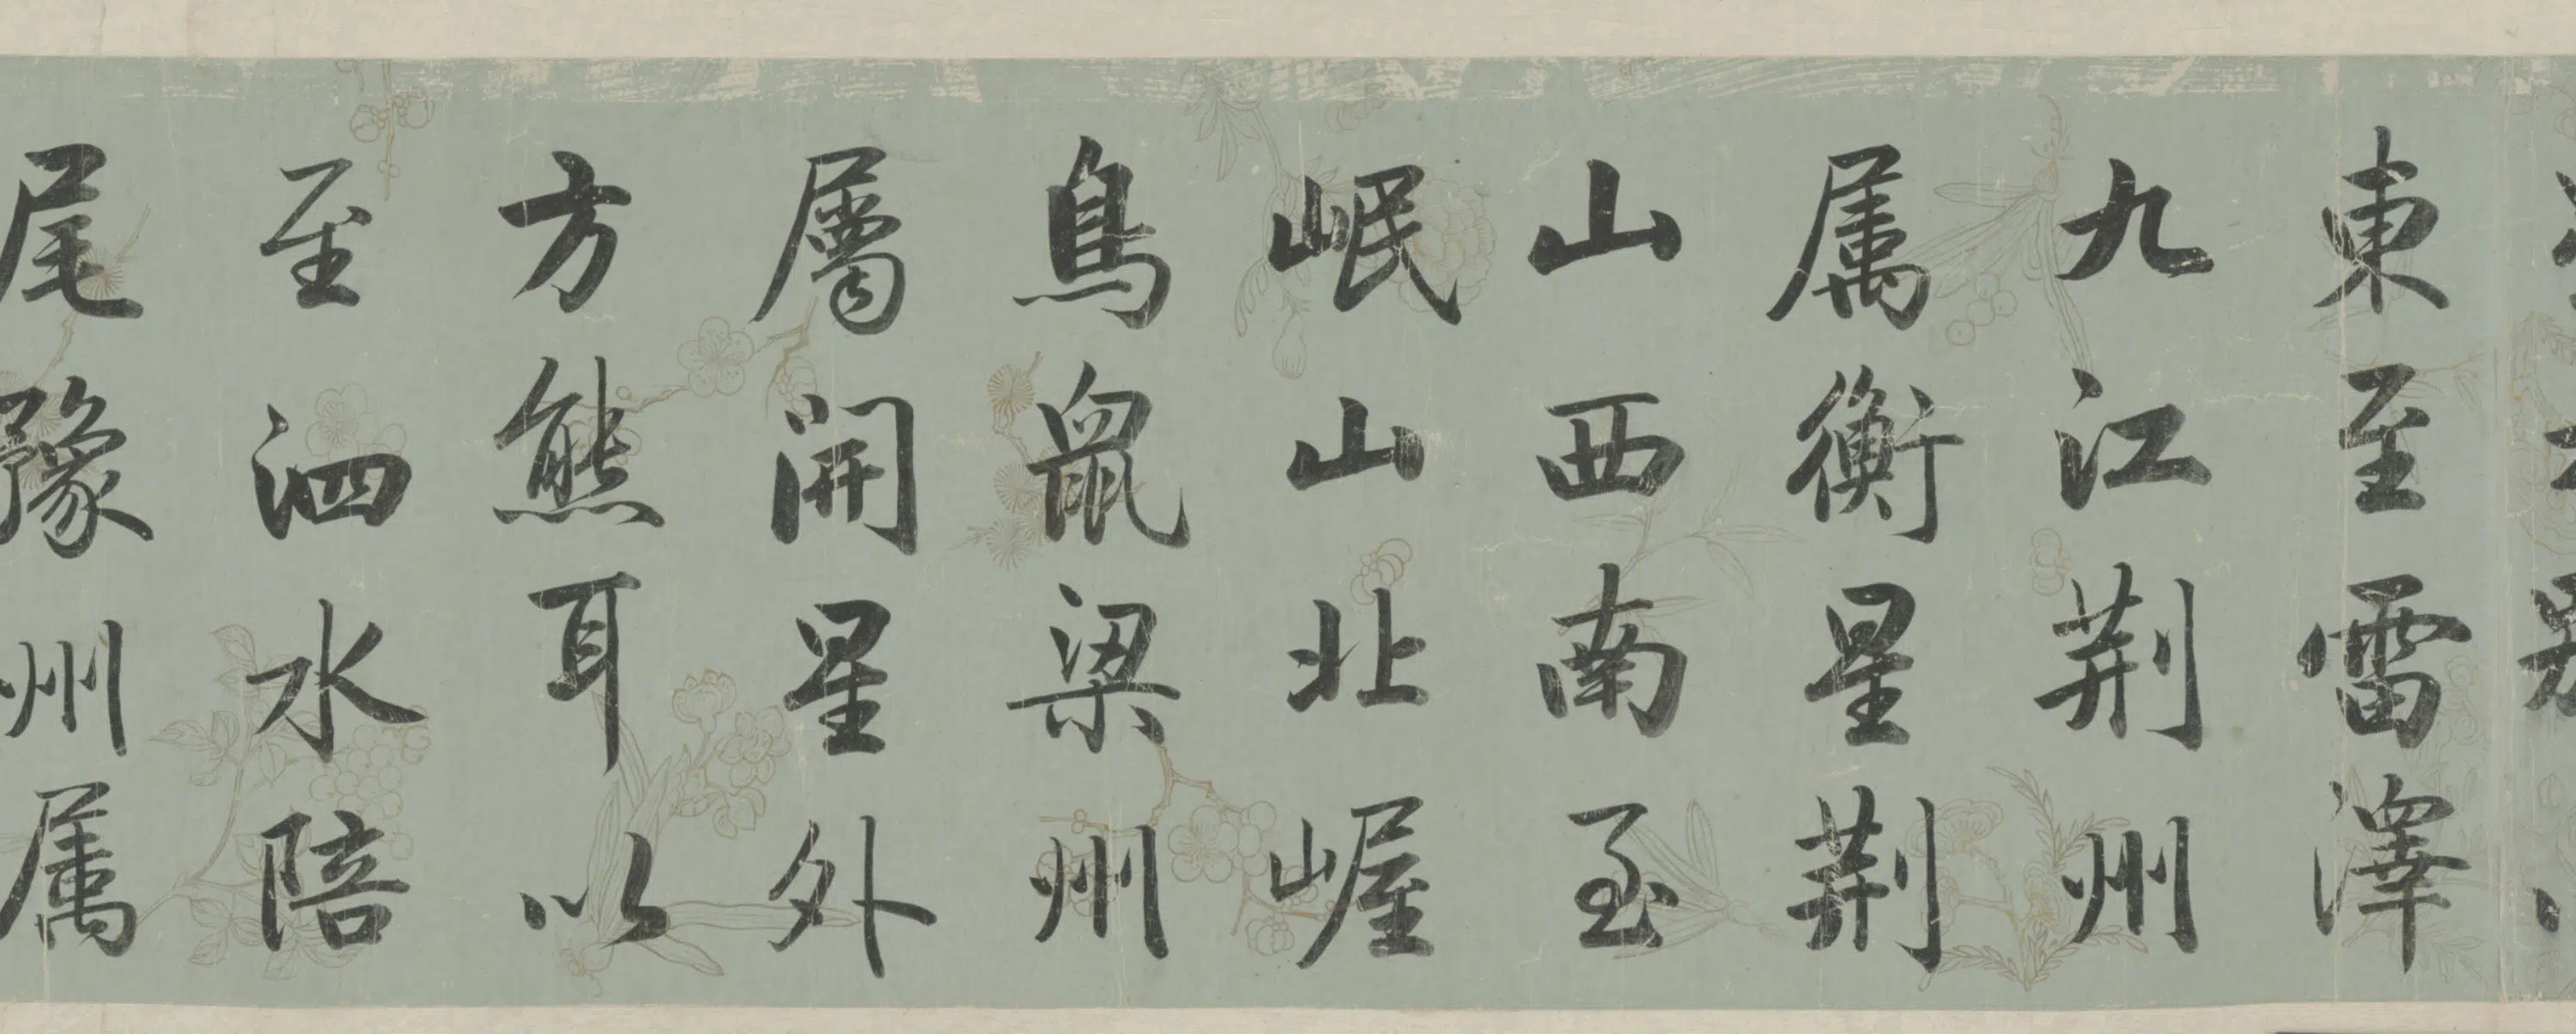 東至雷澤
九江荆州
属衡星荆
山西南至
岷山北崌
鳥鼠梁州
屬開星外
方熊耳以
至泗水陪
尾豫州属